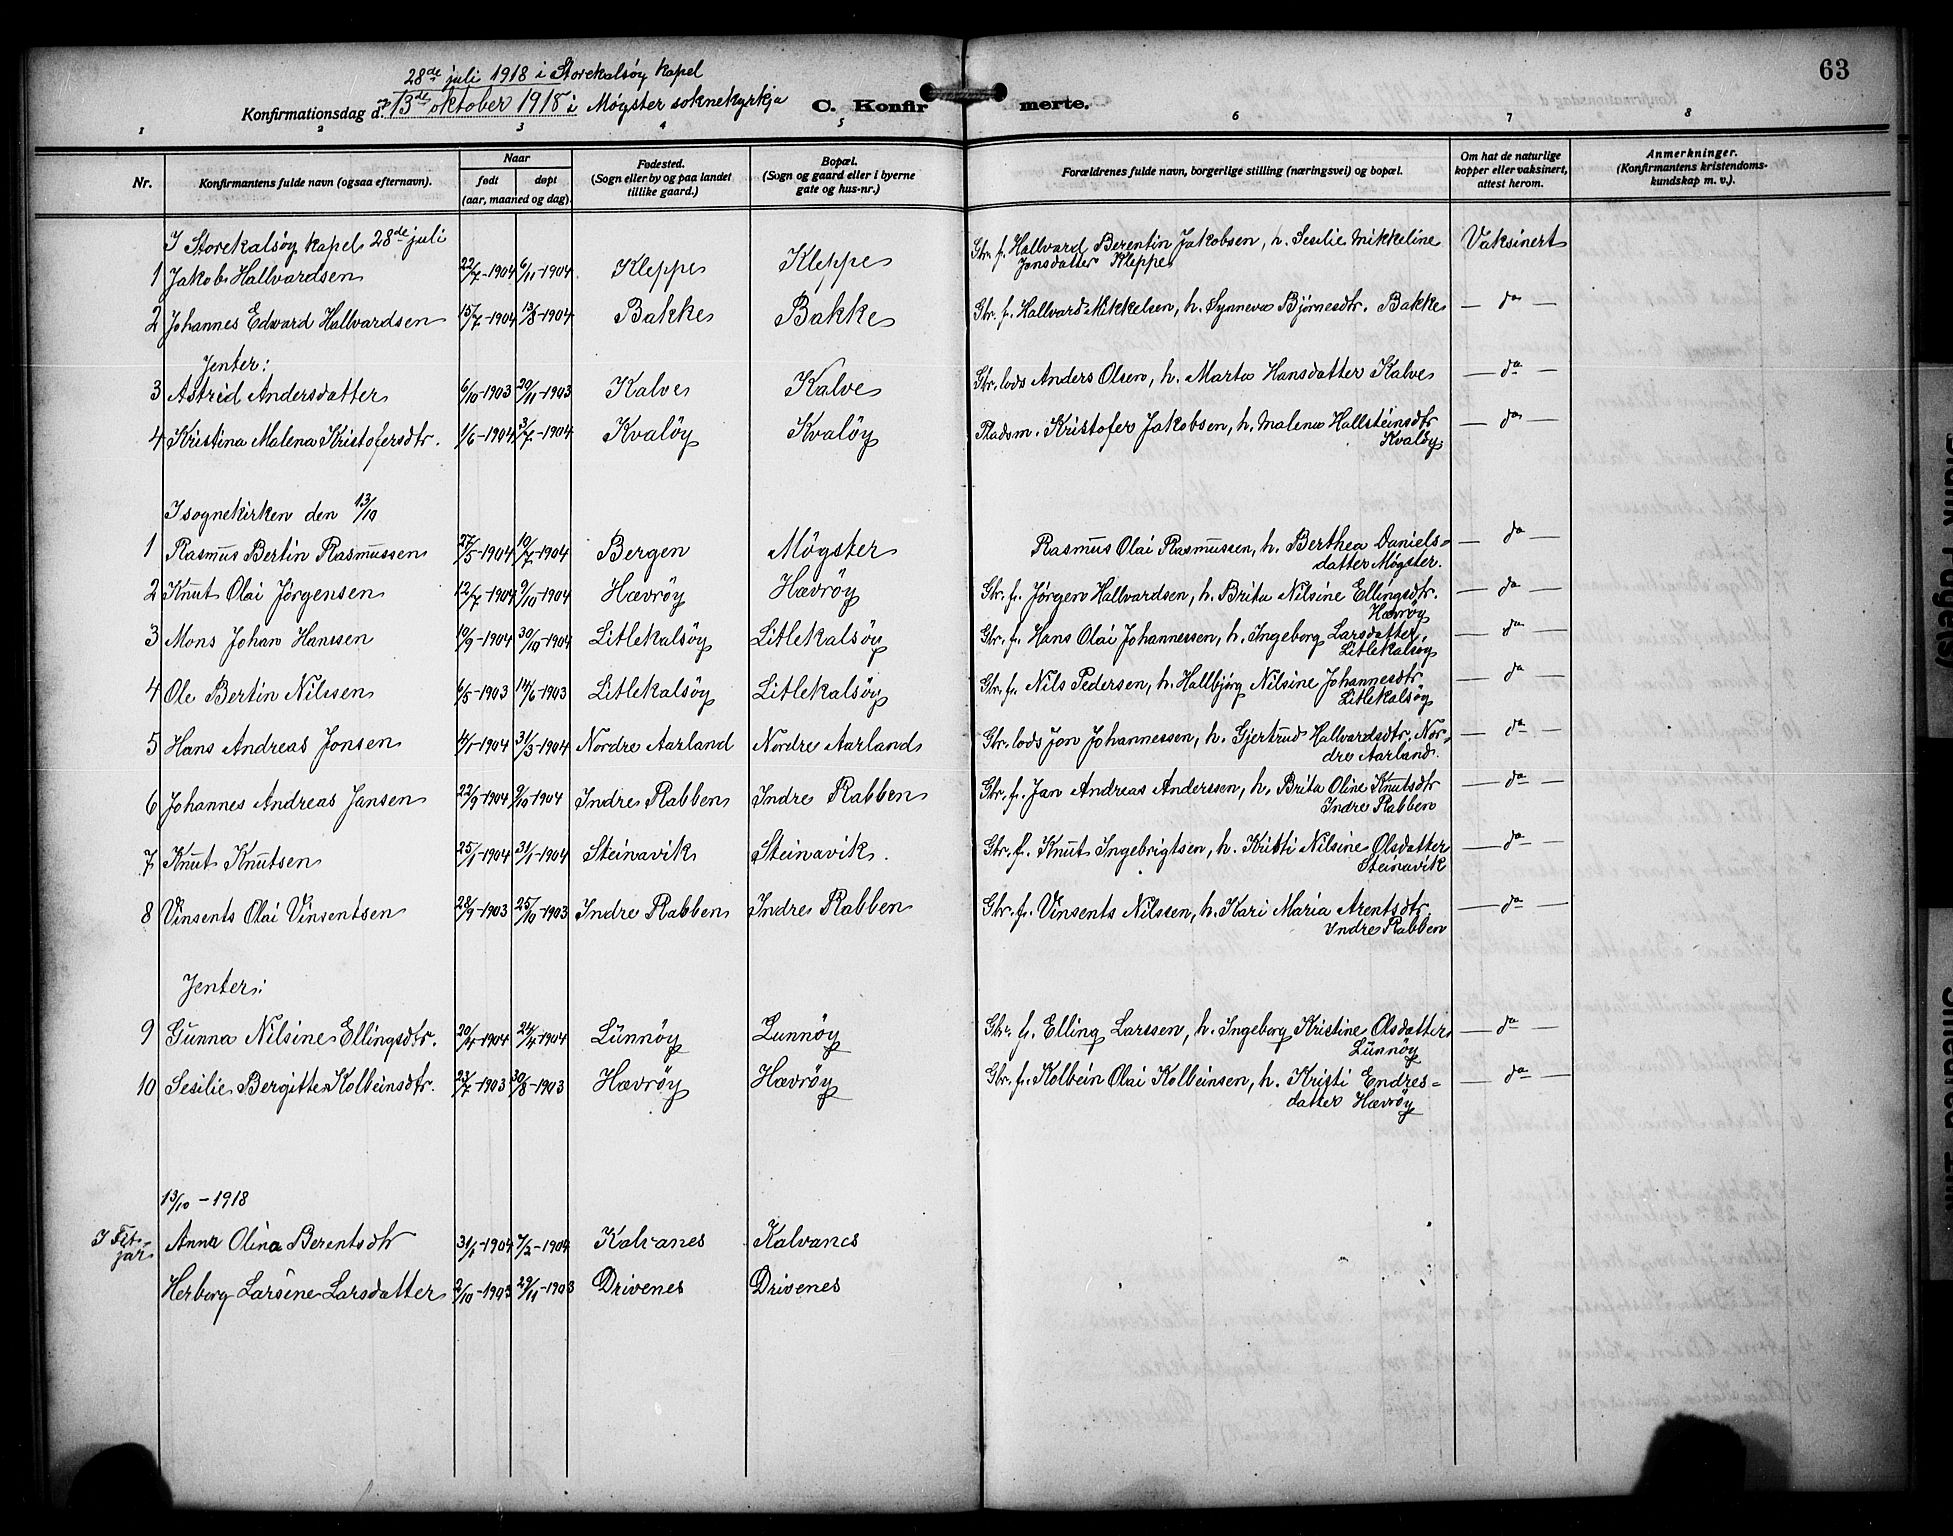 63
28de juli 1918 i Storekalsøy kapel
Konfirmationsdag d. 13de oktober 1918 i Møgster soknekyrkja C. Konfirmerte.
1 2 3 4 5 6 7 8
Nr. Konfirmantens fulde navn (ogsaa efternavn). Naar født døpt (aar, maaned og dag). Fødested. (Sogn eller by og paa landet tillike gaard.) Bopæl. (Sogn og gaard eller i byerne gate og hus-nr.) Forældrenes fulde navn, borgerlige stilling (næringsvei) og bopæl. Om hat de naturlige kopper eller vaksinert, attest herom. Anmerkninger. (Konfirmantens kristendomskundskap m. v.).
I Storekalsøy kapel 28de juli
1 Jakob Hallvardsen 22/7-1904 6/11-1904 Kleppe Kleppe Gbr. f. Hallvard Berentin Jakobsen, h. Sesilie Mikkeline Vaksinert
Jonsdatter Kleppe
2 Johannes Edvard Hallvardsen 15/7-1904 13/8-1904 Bakke Bakke Gbr. f. Hallvard Mikkelsen, h. Synneva Bjørnesdtr. Bakke — do —
Jenter:
3 Astrid Andersdatter 6/10-1903 20/11-1903 Kalve Kalve Gbr. lods Anders Olsen, h. Marta Hansdatter Kalve — do —
4 Kristina Malena Kristofersdtr. 1/6-1904 3/7-1904 Kvaløy Kvaløy Pladsm. Kristofer Jakobsen, h. Malena Hallsteinsdtr — do —
Kvaløy
I sognekirken den 13/10
1 Rasmus Bertin Rasmussen 27/5-1904 10/7-1904 Bergen Møgster Rasmus Olai Rasmussen, h. Berthea Daniels= — do —
datter Møgster.
2 Knut Olai Jørgensen 12/7-1904 9/10-1904 Hævrøy Hævrøy Gbr. f. Jørgen Hallvardsen, h. Brita Nilsine Ellingsdtr. — do —
Hævrøy
3 Mons Johan Hanssen 10/9-1904 30/10-1904 Litlekalsøy Litlekalsøy Gbr. f. Hans Olai Johannessen, h. Ingeborg Larsdatter, — do —
Litlekalsøy
4 Ole Bertin Nilssen 6/5-1903 14/6-1903 Litlekalsøy Litlekalsøy Gbr. f. Nils Pedersen, h. Hallbjørg Nilsine Johannesdtr. — do —
Litlekalsøy
5 Hans Andreas Jonsen 4/1-1904 31/3-1904 Nordre Aarland Nordre Aarland Gbr. lods Jon Johannessen, h. Gjertrud Hallvardsdtr. Nor= — do —
dre Aarland.
6 Johannes Andreas Jansen 22/9-1904 9/10-1904 Indre Rabben Indre Rabben Gbr. f. Jan Andreas Anderssen, h. Brita Oline Knutsdtr — do —
Indre Rabben
7 Knut Knutsen 25/1-1904 31/1-1904 Steinavik Steinavik. Gbr. f. Knut Ingebrigtsen, h. Kristi Nilsine Olsdatter — do —
Steinavik
8 Vinsents Olai Vinsentsen 28/9-1903 25/10-1903 Indre Rabben Indre Rabben Gbr. f. Vinsents Nilssen, h. Kari Maria Arentsdtr. — do —
Indre Rabben
Jenter:
9 Gunna Nilsine Ellingsdtr. 20/4-1904 24/4-1904 Lunnøy Lunnøy Gbr. f. Elling Larssen, h. Ingeborg Kristine Olsdatter — do —
Lunnøy
10 Sesilie Bergitte Kolbeinsdtr. 23/7-1903 30/8-1903 Hævrøy Hævrøy Gbr. f. Kolbein Olai Kolbeinsen, h. Kristi Endres= — do —
datter Hævrøy
13/10 - 1918
I Fitjar Anna Olina Berentsdtr 31/1-1904 7/2-1904 Kalvanes Kalvanes
Herborg Larsine Larsdatter 2/10-1903 29/11-1903 Drivenes Drivenes